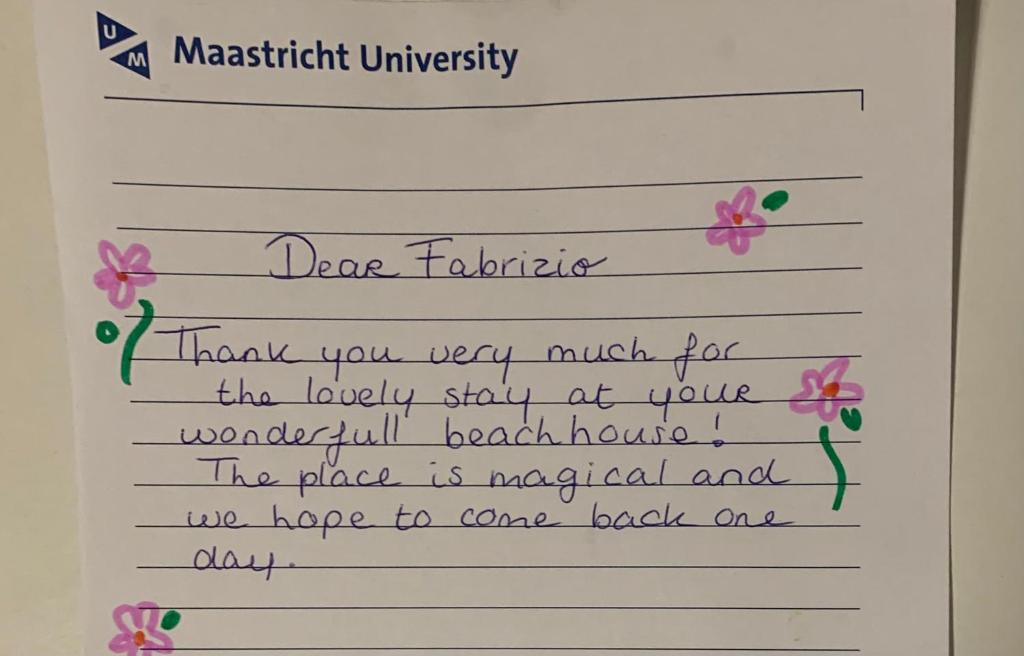 U
M
Maastricht University
Dear Fabrizio
Thank you very much for
the lovely stay at your
wonderfull beachhouse!
The place is magical and
we hope to come back one
day.